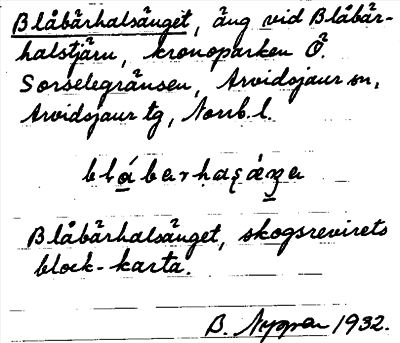 Blåbärhalsänget, äng vid Blåbär-
halstjärn, kronoparken Ö.
Sorselegränsen, Arvidsjaur sn,
Arvidsjaur tg, Norrb. l.
Blåbärhalsänget, skogsrevirets
block-karta.
B. 1932.